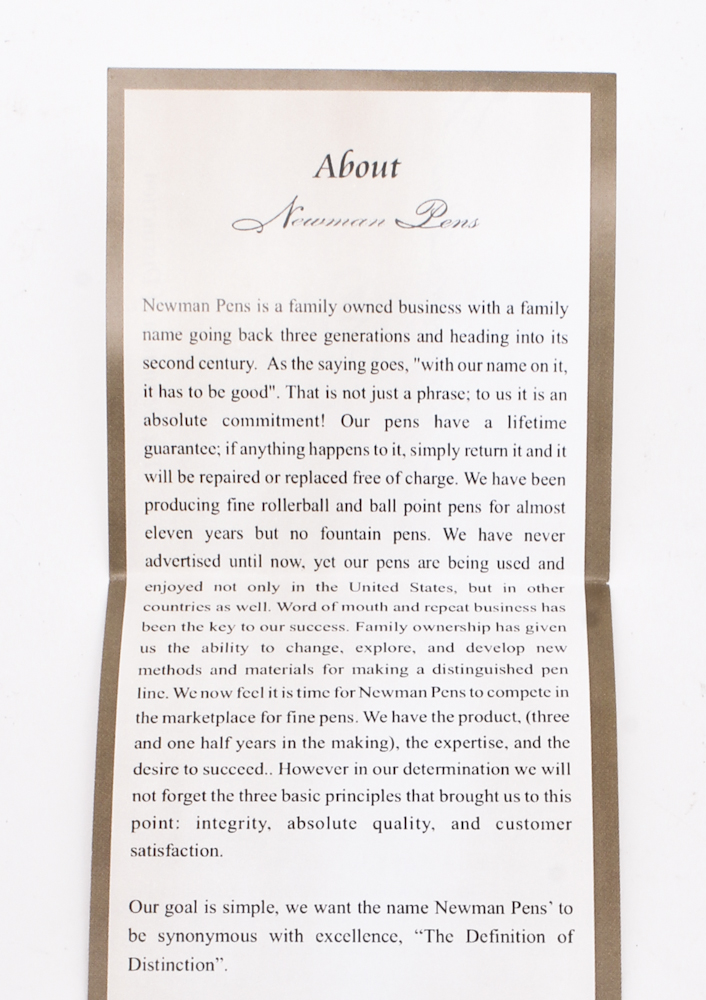 About
Newman Pens
Newman Pens is a family owned business with a family
name going back three generations and heading into its
second century. As the saying goes, "with our name on it,
it has to be good". That is not just a phrase; to us it is an
absolute commitment! Our pens have a lifetime
guarantee; if anything happens to it, simply return it and it
will be repaired or replaced free of charge. We have been
producing fine rollerball and ball point pens for almost
eleven years but no fountain pens. We have never
advertised until now, yet our pens are being used and
enjoyed not only in the United States, but in other
countries as well. Word of mouth and repeat business has
been the key to our success. Family ownership has given
us the ability to change, explore, and develop new
methods and materials for making a distinguished pen
line. We now feel it is time for Newman Pens to compete in
the marketplace for fine pens. We have the product, (three
and one half years in the making), the expertise, and the
desire to succeed.. However in our determination we will
not forget the three basic principles that brought us to this
point: integrity, absolute quality, and customer
satisfaction.
Our goal is simple, we want the name Newman Pens’ to
be synonymous with excellence, “The Definition of
Distinction”.